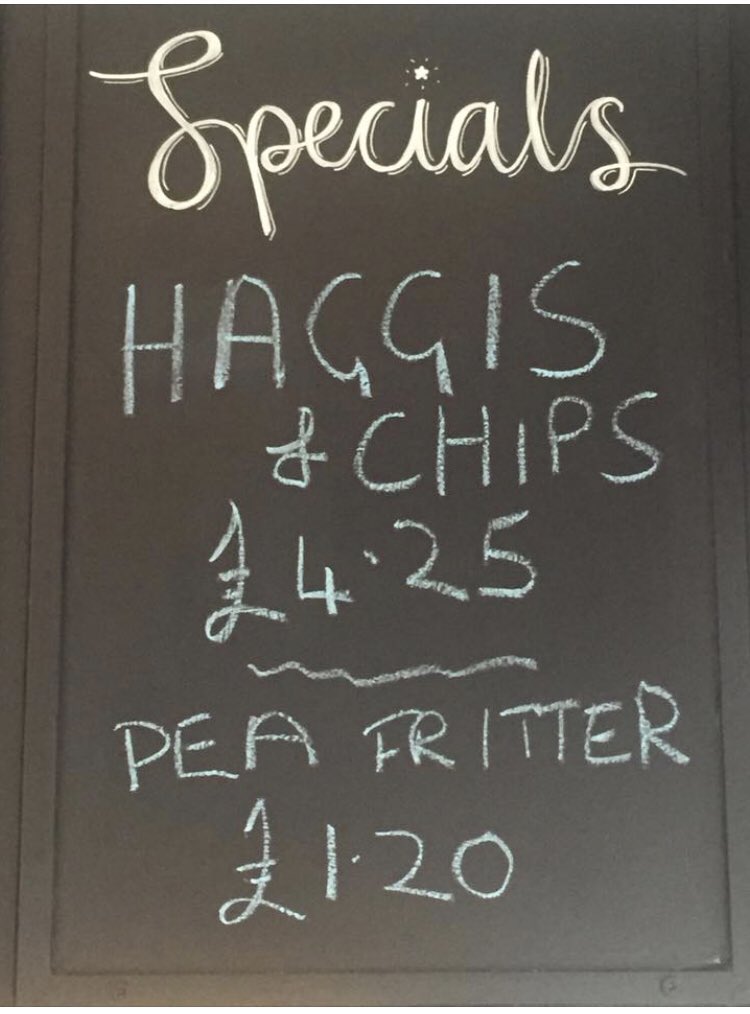 Specials
HAGGIS
& CHIPS
£4.25
PEA FRITTER
£1.20